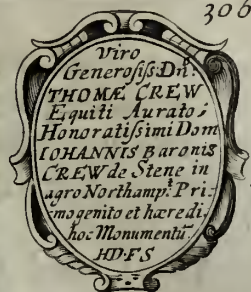 306
Viro
Generosiſs: Dn̄:
THOMÆ CREW
Equiti Aurato;
Honoratiſsimi Dom
IOHANNIS Baronis
CREW de Stene in
agro Northamp.t Pri-
mogenito et hæredi,
hoc Monumentū.
HD·F·S